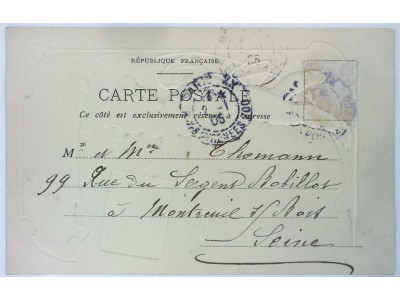 RÉPUBLIQUE FRANÇAISE
CARTE POSTALE
Ce côté est exclusivement réservé à l'adresse
Mr et Mme Thomann
99 Rue du Sergent Bobillot
à Montreuil s/Bois
Seine